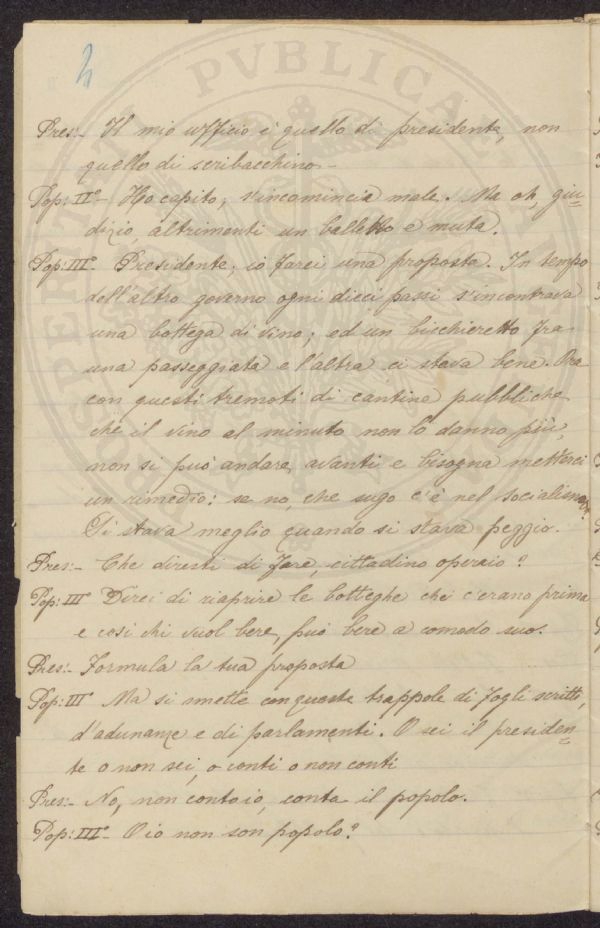 2
Pres:- Il mio ufficio è quello di presidente, non
quello di scribacchino -
Pop: IIº - Ho capito, s'incomincia male. Ma oh, giu=
dizio, altrimenti un balletto e muta.
Pop: IIIº. Presidente, io farei una proposta. In tempo
dell'altro governo ogni dieci passi s'incontrava
una bottega di vino; ed un bicchieretto fra
una passeggiata e l'altra ci stava bene. Ora
con questi tremoti di cantine pubbliche
che il vino al minuto non lo danno più,
non si può andare avanti e bisogna metterci
un rimedio: se no, che sugo c'è nel socialismo?
Si stava meglio quando si stava peggio.
Pres:- Che diresti di fare, cittadino operaio?
Pop: III Direi di riaprire le botteghe che c'erano prima
e così chi vuol bere, può bere a comodo suo.
Pres:- Formula la tua proposta
Pop: III Ma si smette con queste trappole di fogli scritti,
d'adunanze e di parlamenti. O sei il presiden=
te o non sei, o conti o non conti
Pres:- No, non conto io, conta il popolo.
Pop: IIIº - O io non son popolo?
PVBLICAE